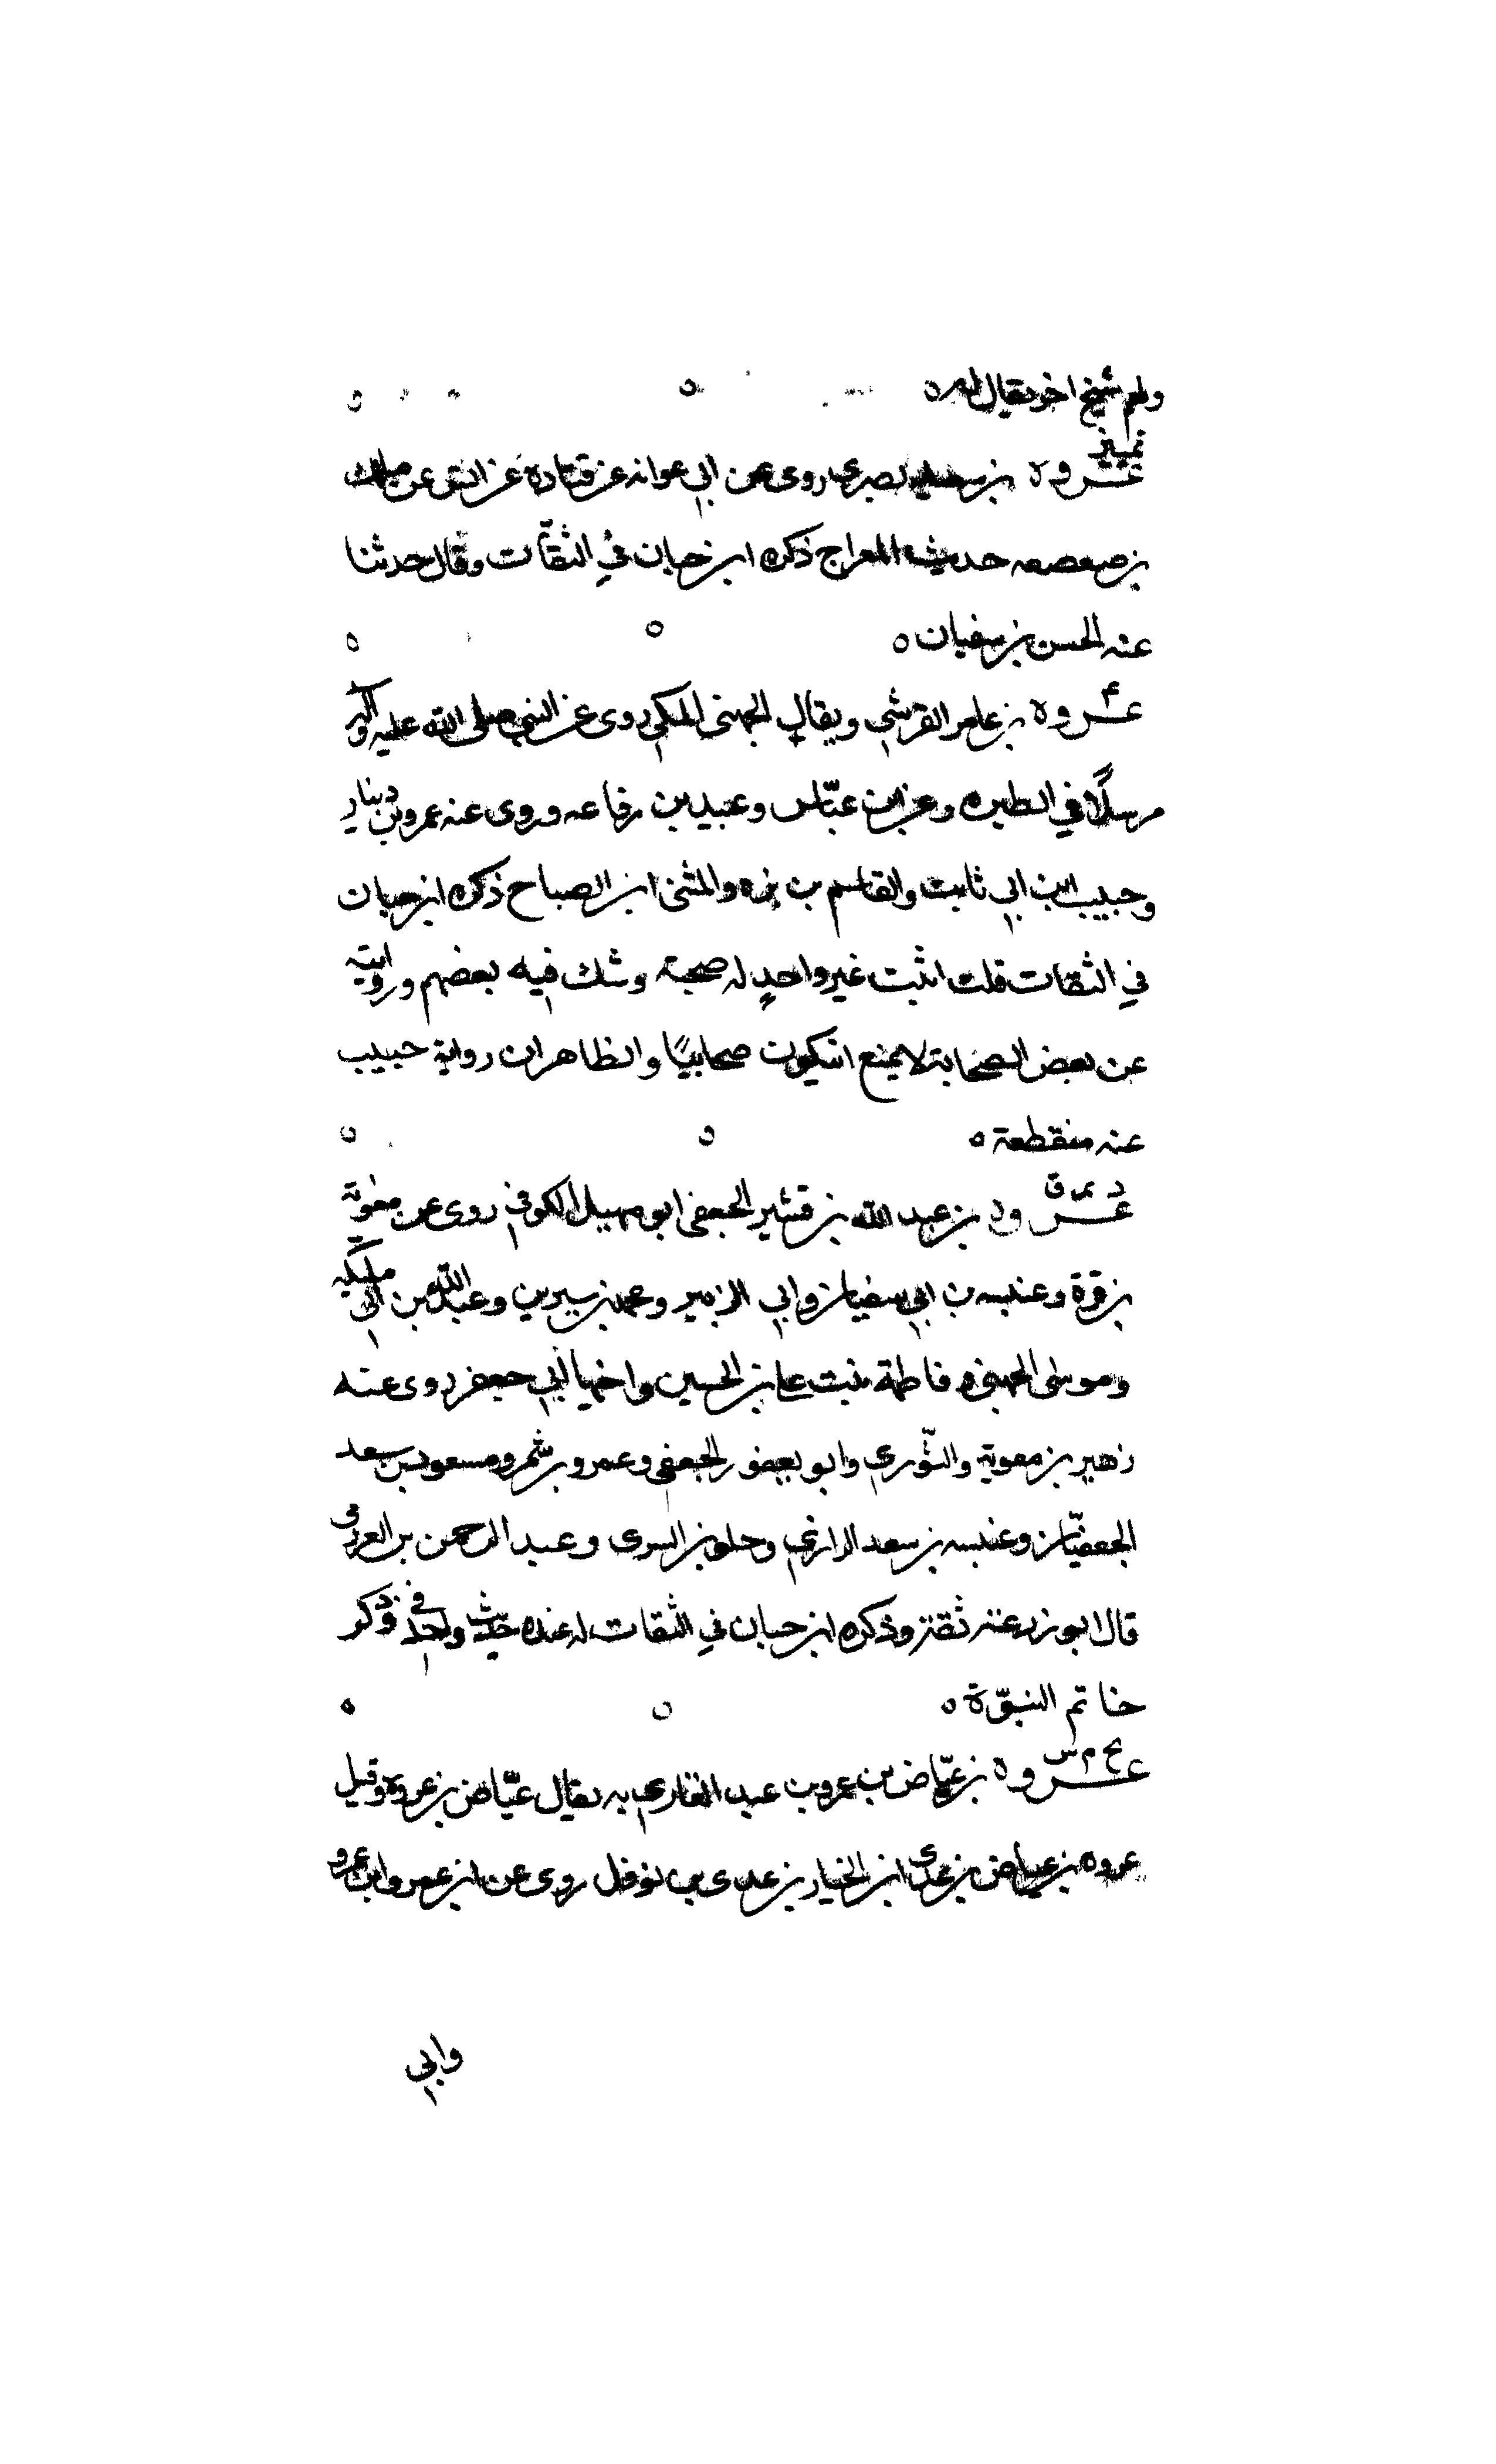 ولهم شيخ اخر يقال له ه
تمييز
عروة بن سعيد بصرى روى عن ابي عوانه عن قتاده عن انس عن مالك
بن صعصعه حديث المعراج ذكره ابن حبان في الثقات وقال حدثنا
عنه الحسن بن سفيان ه
عروة بن عامر القرشي ويقال الجهنى المكي روى عن النبي صلى الله عليه واله
مرسلًا في الطيره وعن ابن عبّاس وعبيد بن رفاعه وروى عنه عمرو بن دينار
وحبيب ابن ابي ثابت والقاسم بن بزه والمثنى ابن الصباح ذكره ابن حبان
في الثقات قلت اثبت غير واحدٍ له صحبة وشك فيه بعضهم وروايته
عن بعض الصحابة لا يمنع ان يكون صحابيًا والظاهر ان رواية حبيب
عنه منقطعة ه
د تم ق
عروة بن عبد الله بن قشير الجعفى ابو مهيل الكوفي روى عن معوية
بن قرة وعنبسه بن ابي سفيان وابي الزبير ومحمد بن سيرين وعبد الله بن ابي مليكه
وموسى الجهنى وفاطمة بنت علي بن الحسين واخيها ابي جعفر روى عنه
زهير بن معوية والثّوري وابو يعفور الجعفي وعمرو بن شمر ومسعود بن سعد
الجعفيّان وعنبسه بن سعد الرازي وحلو بن السرى وعبد الرحمن بن العزرمى
قال ابو زرعة ثقة وذكره ابن حبان في الثقات له عنده حديث واحد في ذكر
خاتم النبوّة ه
بخ م س
عروة بن عيّاض بن عمرو بن عبد القاري يقال عيّاض بن عروة وقيل
عروه بن عياض بن عدى ابن الخيار بن عدى بن نوفل روى عن ابن عمر وابن عمرو
وابي